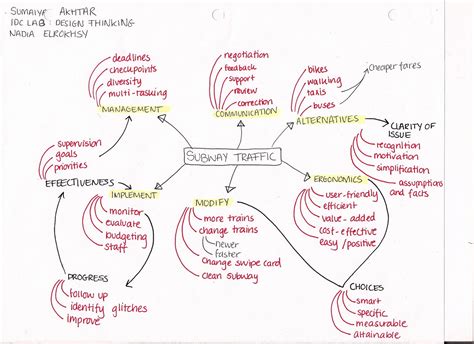 SUMAIYA AKHTAR
IDC LAB: DESIGN THINKING
NADIA ELROKHSY
deadlines
checkpoints
diversity
multi-tasking
MANAGEMENT
negotiation
feedback
support
review
correction
COMMUNICATION
bikes
walking
taxis
buses
ALTERNATIVES
cheaper fares
CLARITY OF
ISSUE
recognition
motivation
simplification
assumptions
and facts
SUBWAY TRAFFIC
supervision
goals
priorities
EFFECTIVENESS
IMPLEMENT
monitor
evaluate
budgeting
staff
MODIFY
more trains
change trains
newer
faster
change swipe card
clean subway
ERGONOMICS
user-friendly
efficient
value-added
cost-effective
easy/positive
PROGRESS
follow up
identify glitches
improve
CHOICES
smart
specific
measurable
attainable